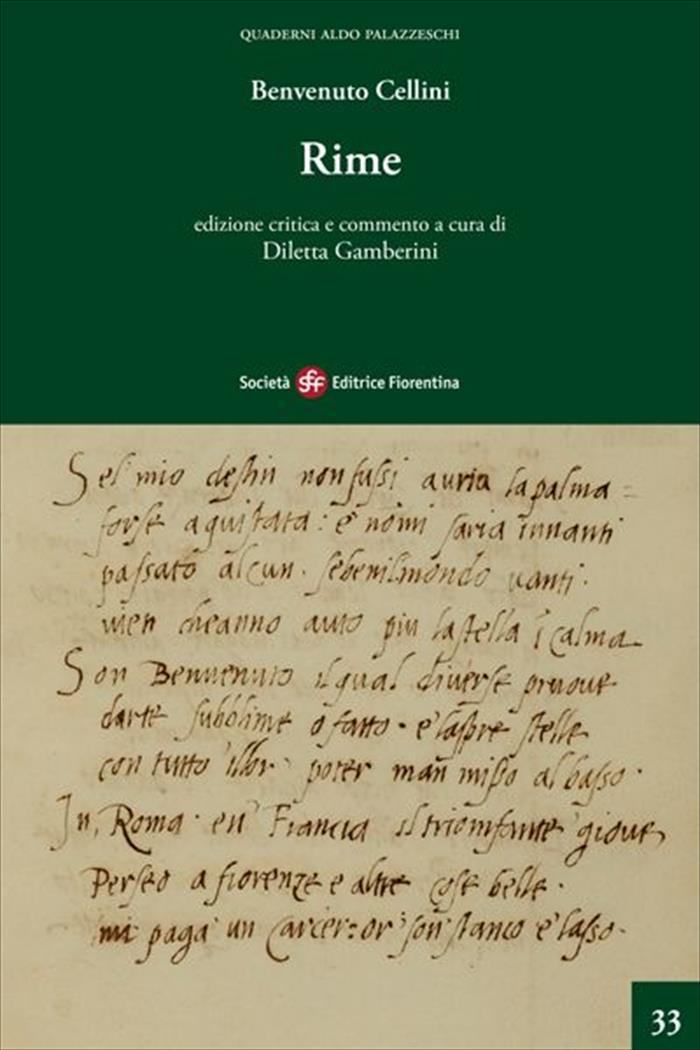 QUADERNI ALDO PALAZZESCHI
Benvenuto Cellini
Rime
edizione critica e commento a cura di
Diletta Gamberini
Società sff Editrice Fiorentina
Sel mio destin non fussi auria la palma
forse aquistata: e nomi saria innanti
passato alcun. sebenilmondo uanti.
uien cheanno auto piu lastella i calma
Son Benuenuto ilqual diuerse pruoue
darte subblime o fatto. e laspre stelle
con tutto illor poter mañ misso al basso.
In, Roma. en Francia il triomfante gioue
Perseo a fiorenze e altre cose belle.
mi paga un carcer: or son stanco e lasso.
33